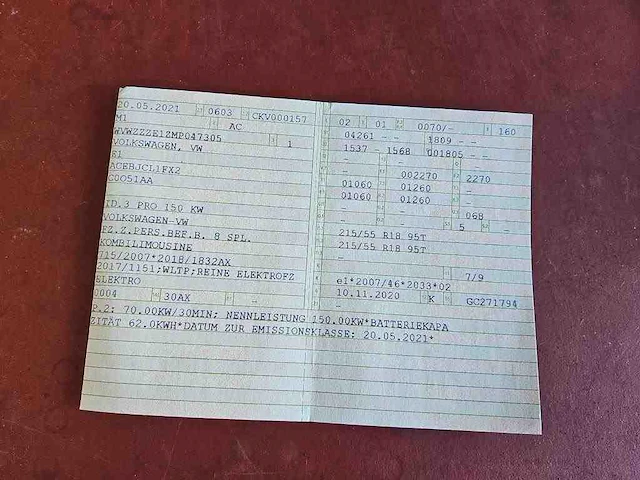 20.05.2021 0603 CKV000157
M1 AC
WVWZZZE1ZMP047305 1
VOLKSWAGEN, VW
E1
ACEBJCL1FX2
C0051AA
ID.3 PRO 150 KW
VOLKSWAGEN-VW
FZ.Z.PERS.BEF.B. 8 SPL.
KOMBILIMOUSINE
715/2007*2018/1832AX
2017/1151;WLTP;REINE ELEKTROFZ
ELEKTRO
0004 30AX -
02 01 0070/- 160
04261 - - 1809 - -
1537 - 1568 001805 - -
- - -
- 002270 2270
01060 01260 -
01060 01260 -
- - 068
- - 5 -
215/55 R18 95T
215/55 R18 95T
-
- 7/9
e1*2007/46*2033*02
10.11.2020 K GC271794
-
P.2: 70.00KW/30MIN; NENNLEISTUNG 150.00KW*BATTERIEKAPA
ZITÄT 62.0KWH*DATUM ZUR EMISSIONSKLASSE: 20.05.2021*